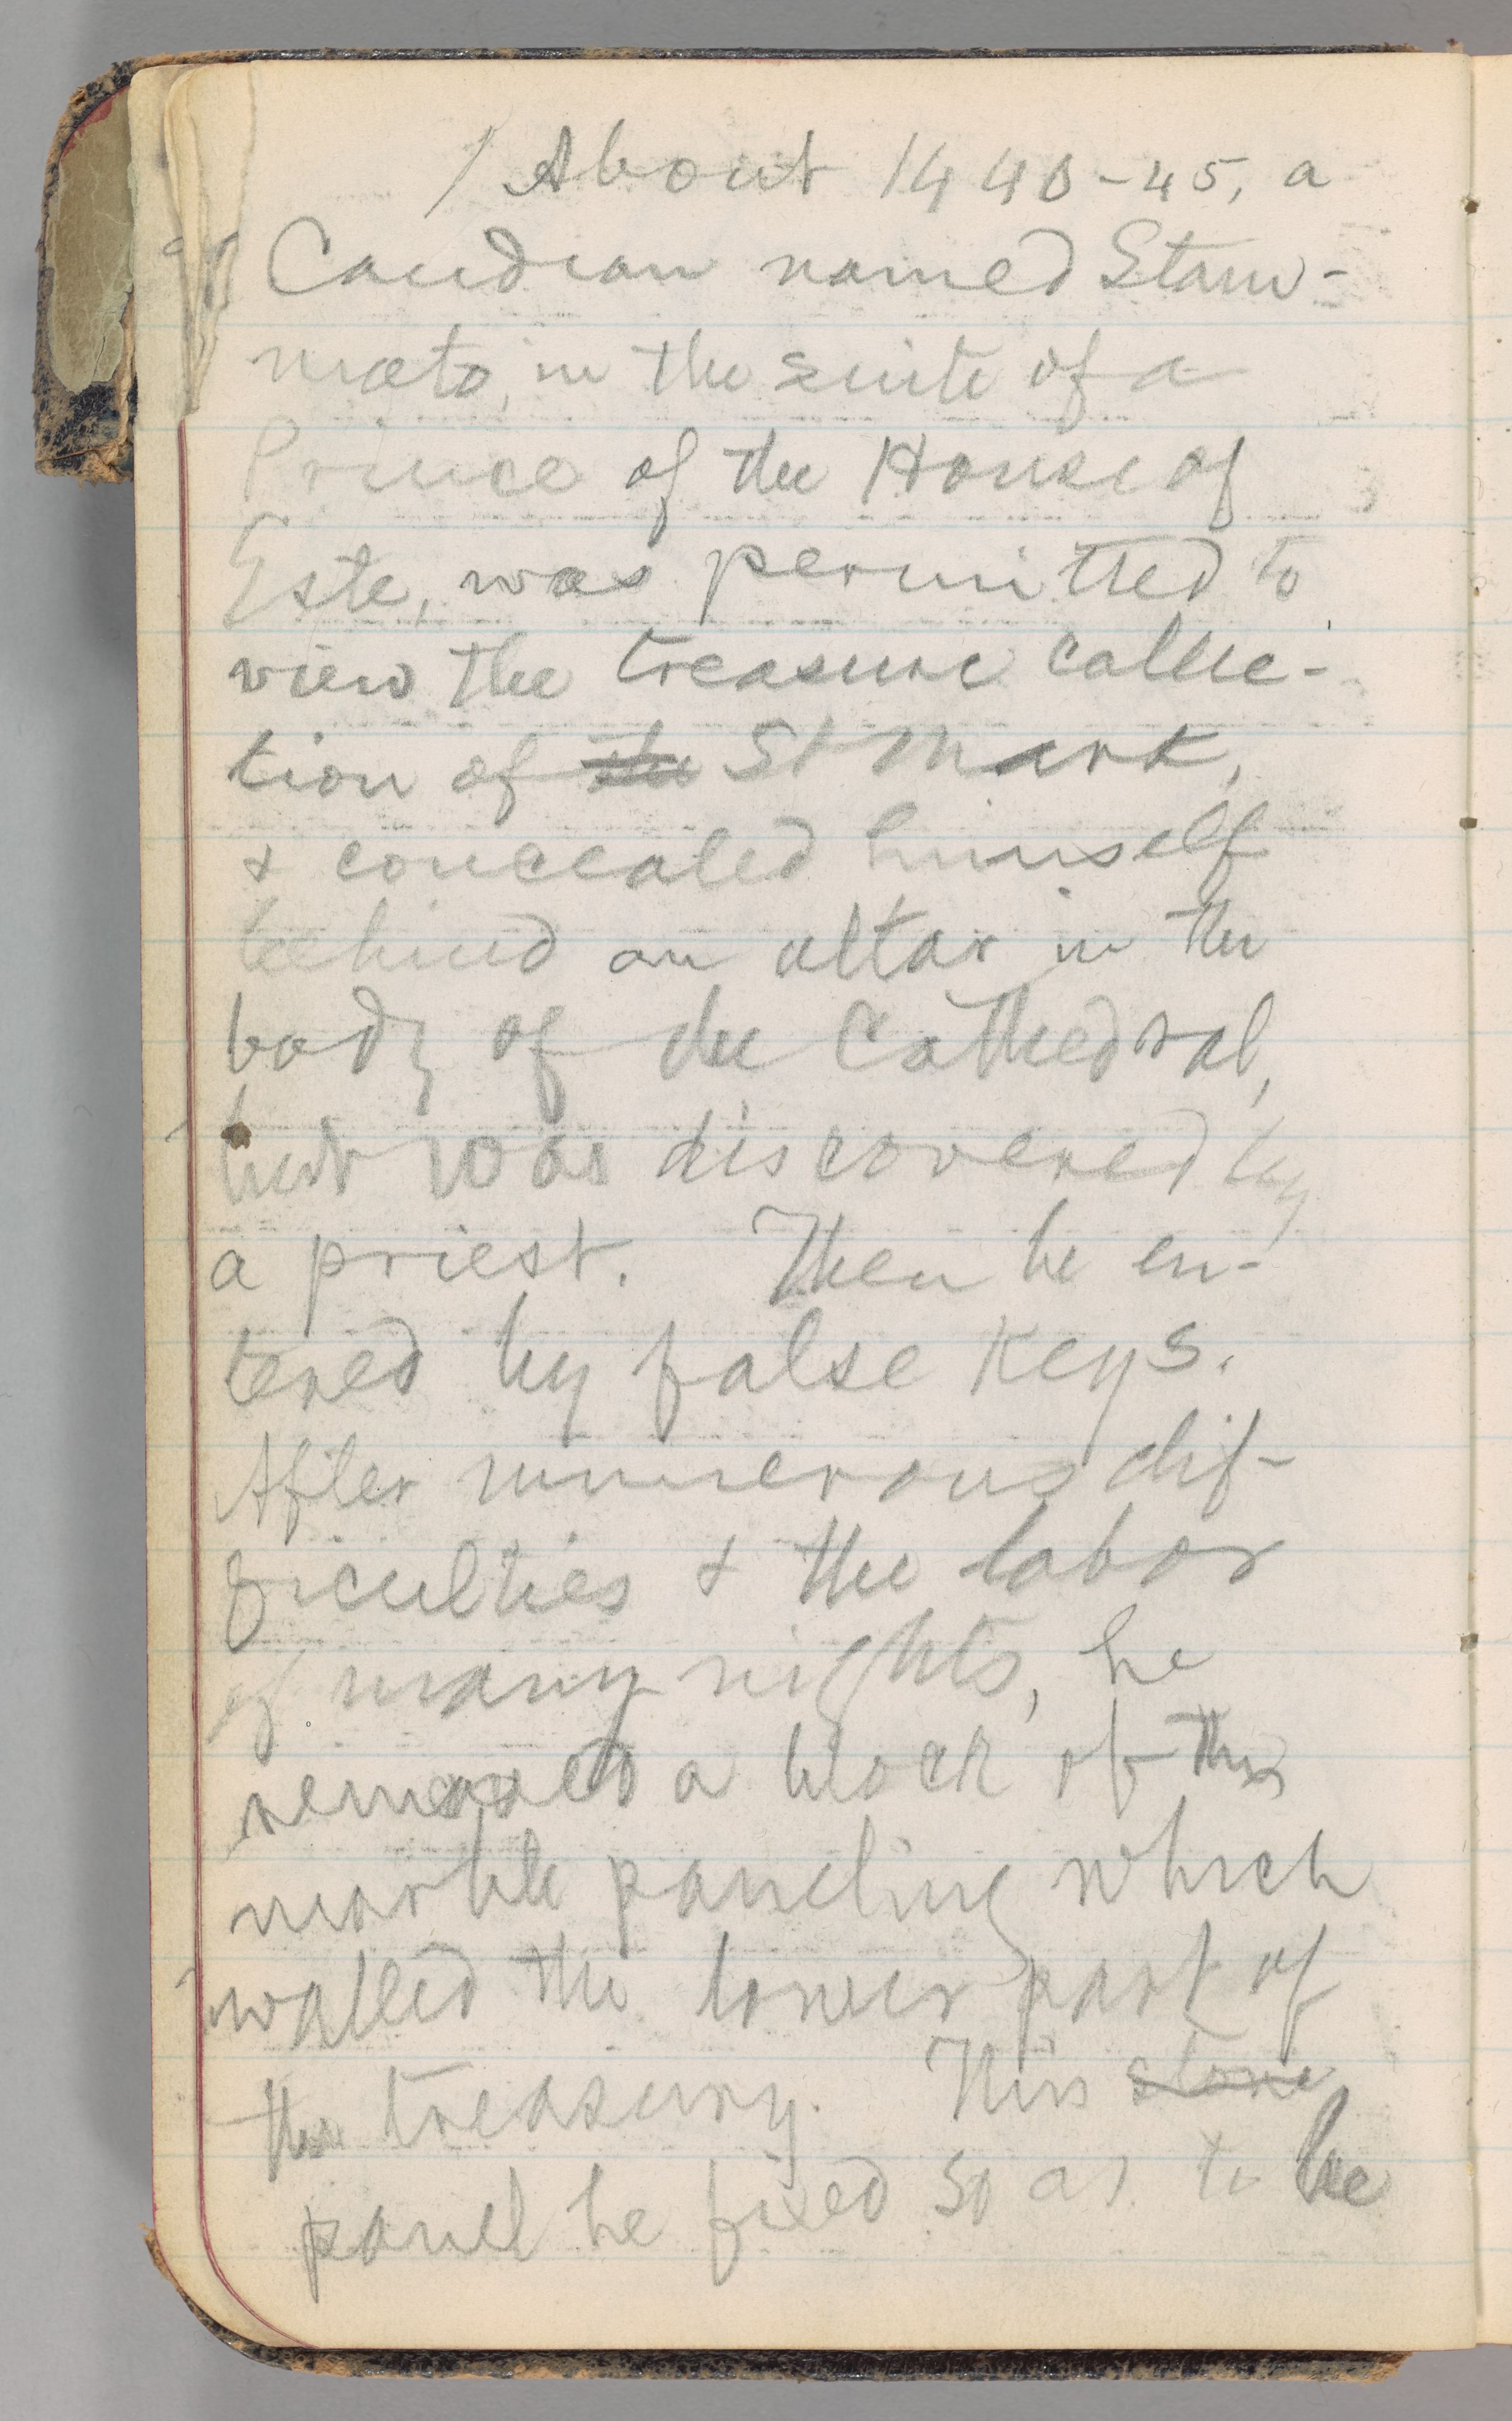 / About 1440-45, a
Candian named Stam-
mato, in the suite of a
Prince of the House of
Este, was permitted to
view the treasure collec-
tion of the St Mark,
& concealed himself
behind an altar in the
body of the Cathedral,
but was discovered by
a priest. Then he en-
tered by false Keys.
After numerous dif-
ficulties & the labor
of many nights, he
removed a block of the
marble paneling which
walled the lower part of
the treasury. This stone
panel he fixed so as to be